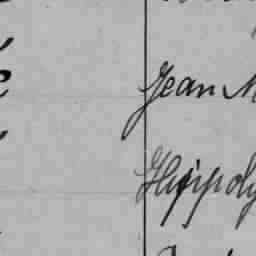 Jean M
Hippoly